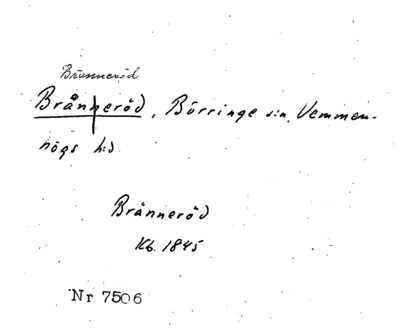 Bränneröd
Brånneröd, Börringe s:n, Vemmen-
högs h:d
Bränneröd
Kb. 1845
Nr 7506